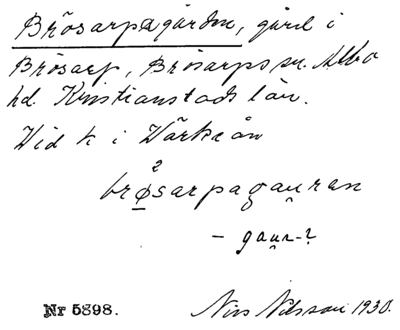 Brösarpagården, gård i
Brösarp, Brösarps sn. Albo
hd. Kristianstads län.
Vid k i Värkeån
brø²sarpagau̯ran
- gau̯r-?
Nr 5898. Nils Nilsson 1930.